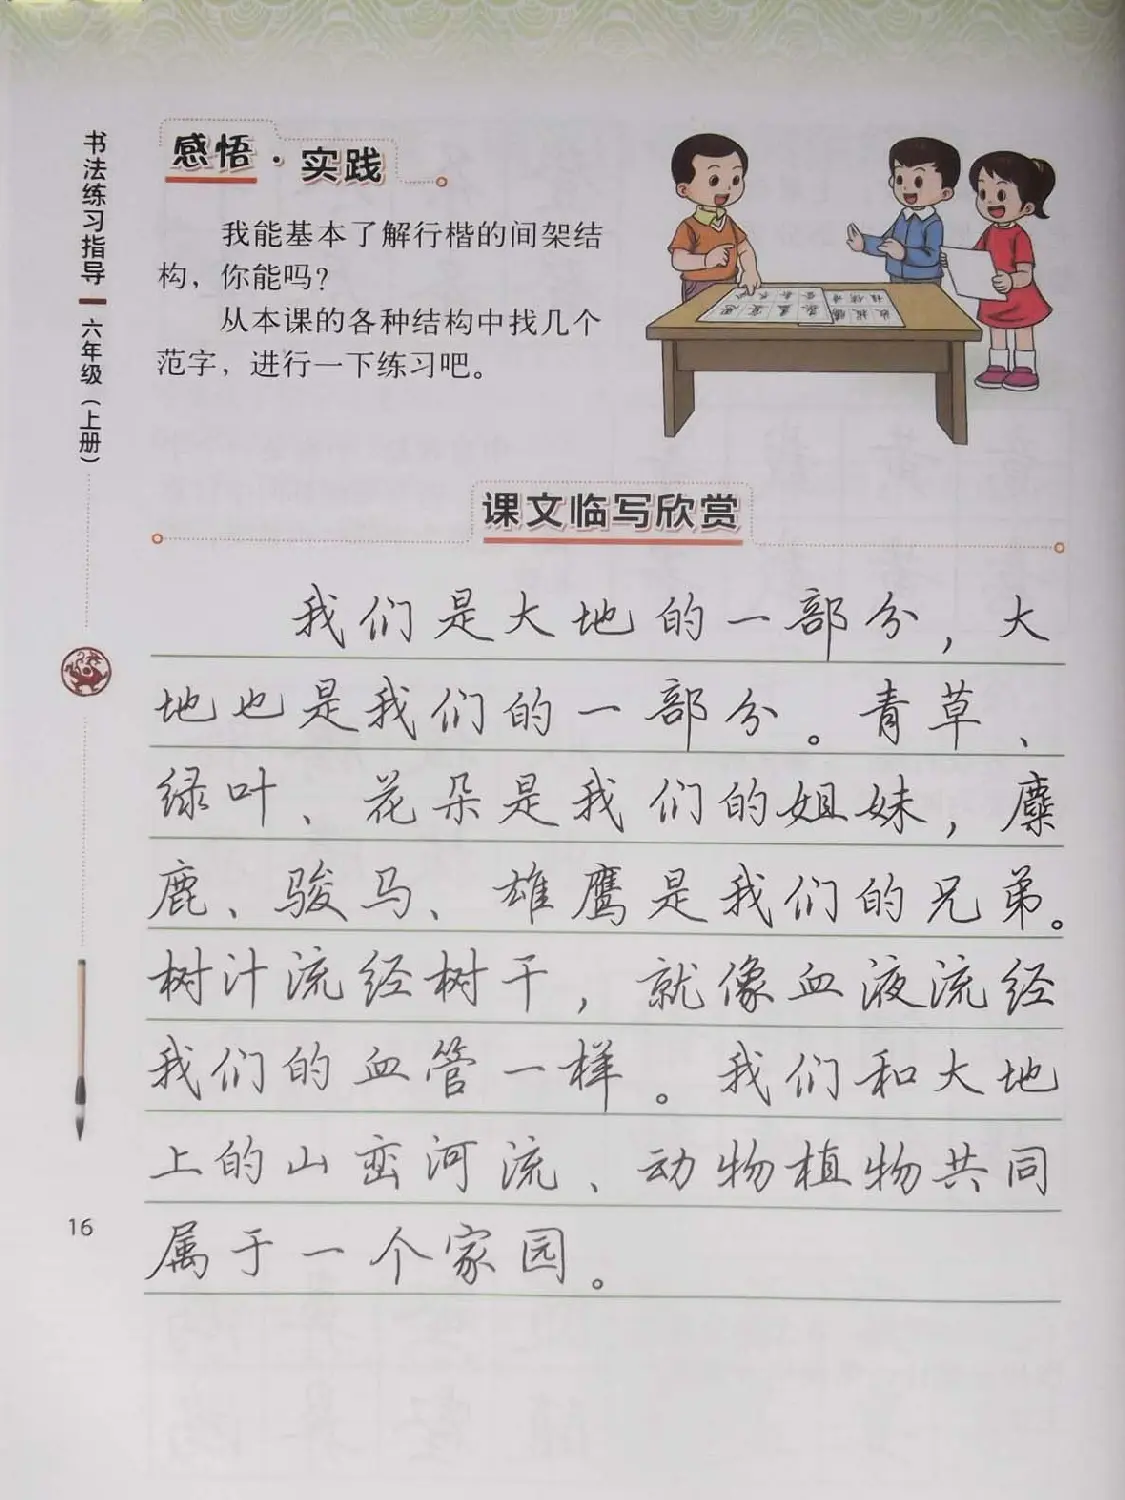 书法练习指导 六年级（上册）
感悟·实践
我能基本了解行楷的间架结
构，你能吗？
从本课的各种结构中找几个
范字，进行一下练习吧。
课文临写欣赏
我们是大地的一部分，大
地也是我们的一部分。青草、
绿叶、花朵是我们的姐妹，麋
鹿、骏马、雄鹰是我们的兄弟。
树汁流经树干，就像血液流经
我们的血管一样。我们和大地
上的山峦河流、动物植物共同
属于一个家园。
16